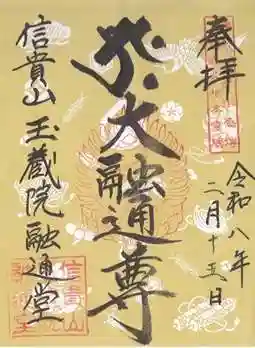 奉拝
令和八年
二月十五日
大融通尊
信貴山 玉蔵院 融通堂
信貴山